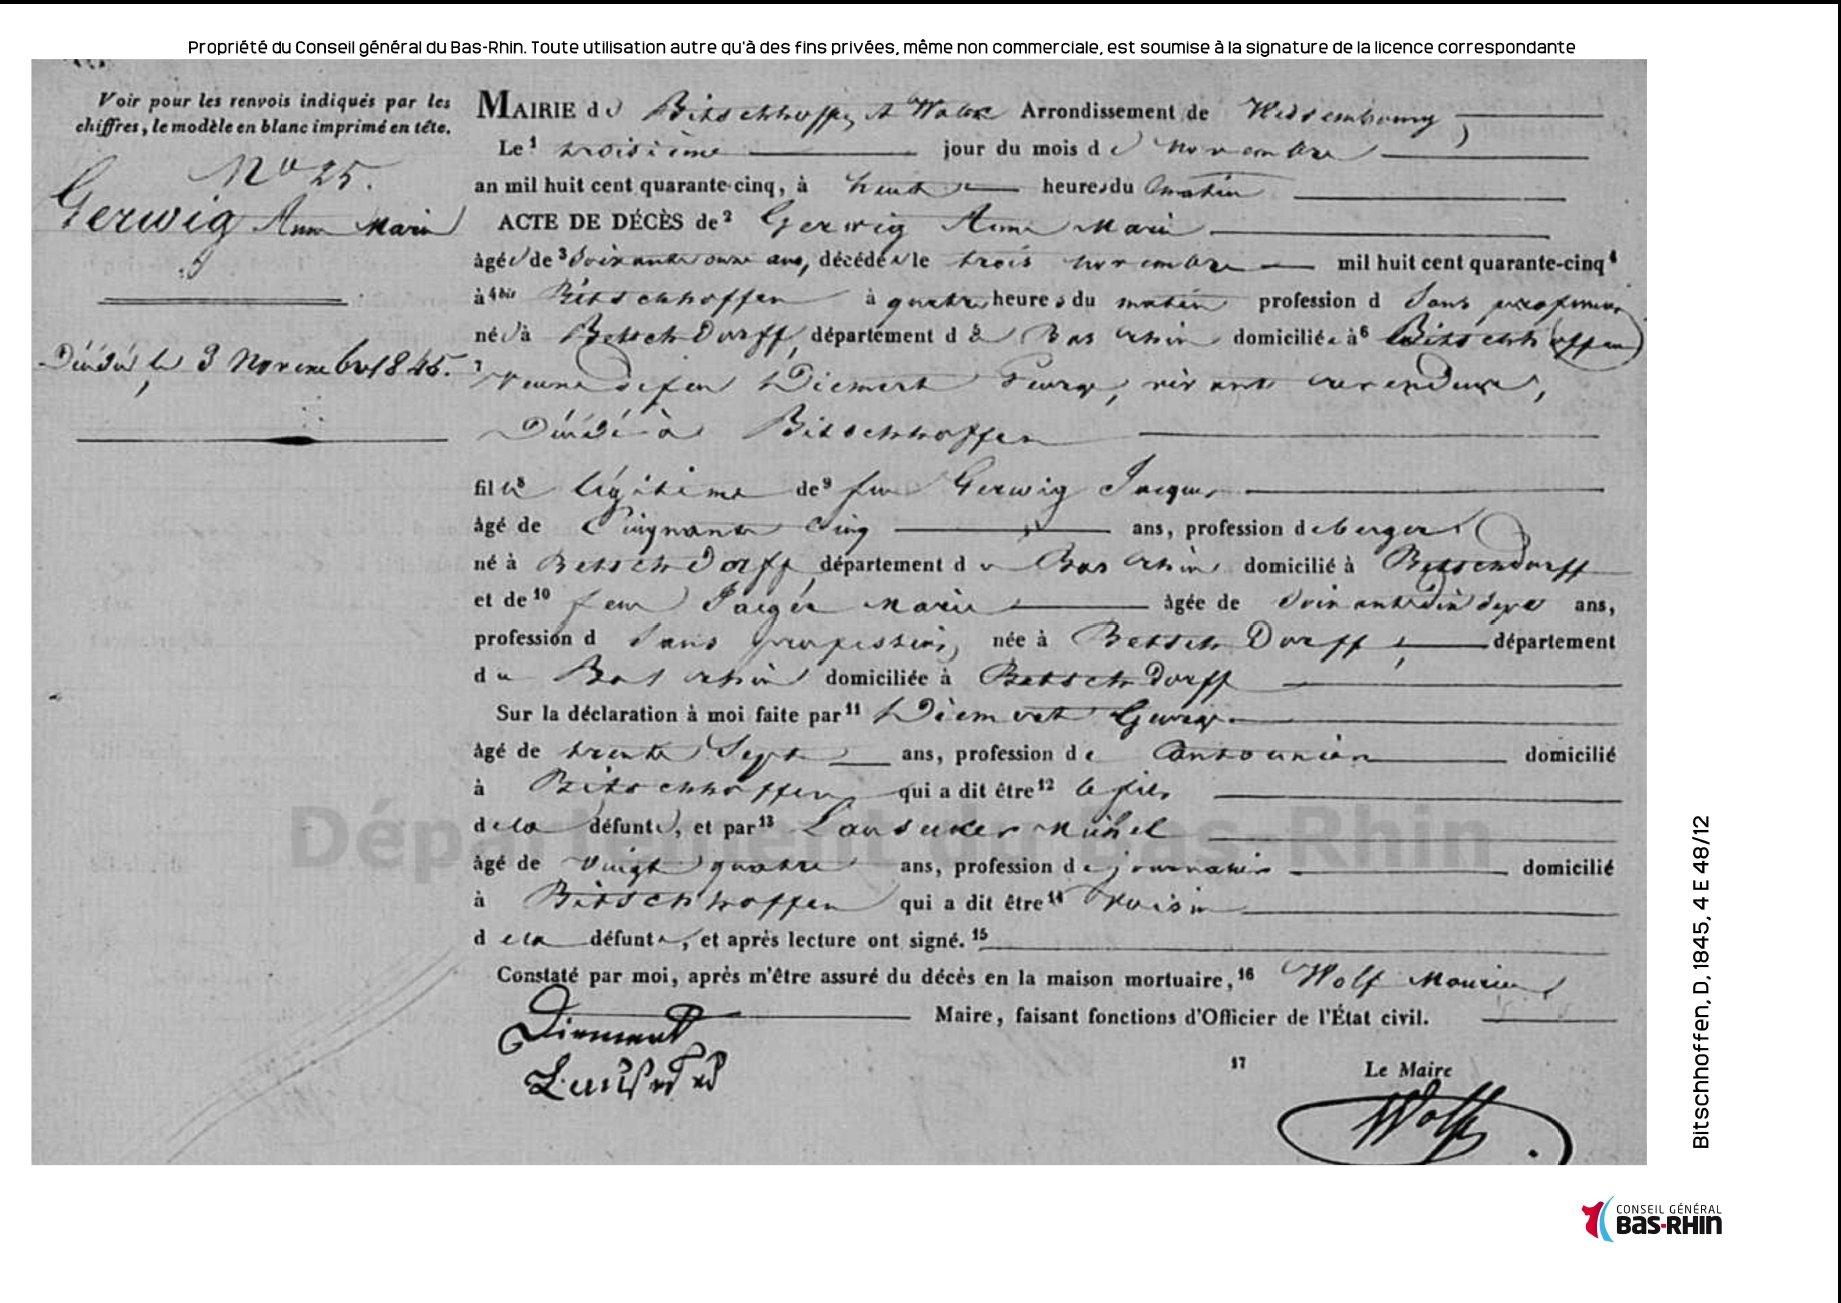 Propriété du Conseil général du Bas-Rhin. Toute utilisation autre qu'à des fins privées, même non commerciale, est soumise à la signature de la licence correspondante
Voir pour les renvois indiqués par les
chiffres, le modèle en blanc imprimé en tête.
No 25.
Gerwig Anne Marie
Décédée le 3 Novembre 1845.
MAIRIE de Bitschhoffen & Walck Arrondissement de Wissembourg,
Le 1 troisième jour du mois de novembre
an mil huit cent quarante-cinq, à huit heures du matin
ACTE DE DÉCÈS de 2 Gerwig Anne Marie
âgée de 3 Soixante onze ans, décédée le trois novembre mil huit cent quarante-cinq 4
à 4 bis Bitschhoffen à quatre heures du matin profession d Sans profession
née à Betschdorff, département du Bas rhin domiciliée à 6 Bitschhoffen
7 Veuve de feu Diemert George, vivant revendeur,
Décédé à Bitschhoffen
fille 8 légitime de 9 feu Gerwig Jacques
âgé de Cinquante Cinq ans, profession de berger
né à Betschdorff, département du Bas rhin domicilié à Betschdorff
et de 10 feu Jaeger Marie âgée de Soixante dix Sept ans,
profession d Sans profession, née à Betschdorff, département
du Bas rhin domiciliée à Betschdorff
Sur la déclaration à moi faite par 11 Diemert George
âgé de trente Sept ans, profession de Cantonnier domicilié
à Bitschhoffen qui a dit être 12 le fils
de la défunte, et par 13 Michel
âgé de vingt quatre ans, profession de journalier domicilié
à Bitschhoffen qui a dit être 14 Voisin
de la défunte, et après lecture ont signé. 15
Constaté par moi, après m'être assuré du décès en la maison mortuaire, 16 Wolf
Maire, faisant fonctions d'Officier de l'État civil.
Diemert
17 Le Maire
Wolf
Département du Bas-Rhin
Bitschhoffen, D, 1845, 4 E 48/12
CONSEIL GÉNÉRAL
BAS-RHIN